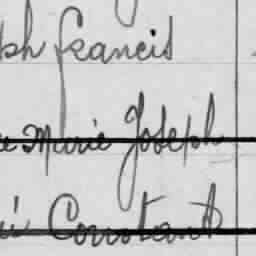 ph Francis
e Marie Joseph
i Constant